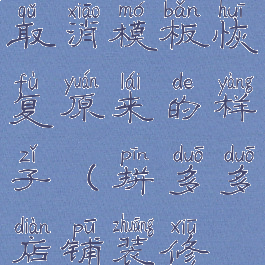 qǔ xiāo mó bǎn huī
取消模板恢
fù yuán lái de yàng
复原来的样
zǐ pīn duō duō
子（拼多多
diàn pù zhuāng xiū
店铺装修